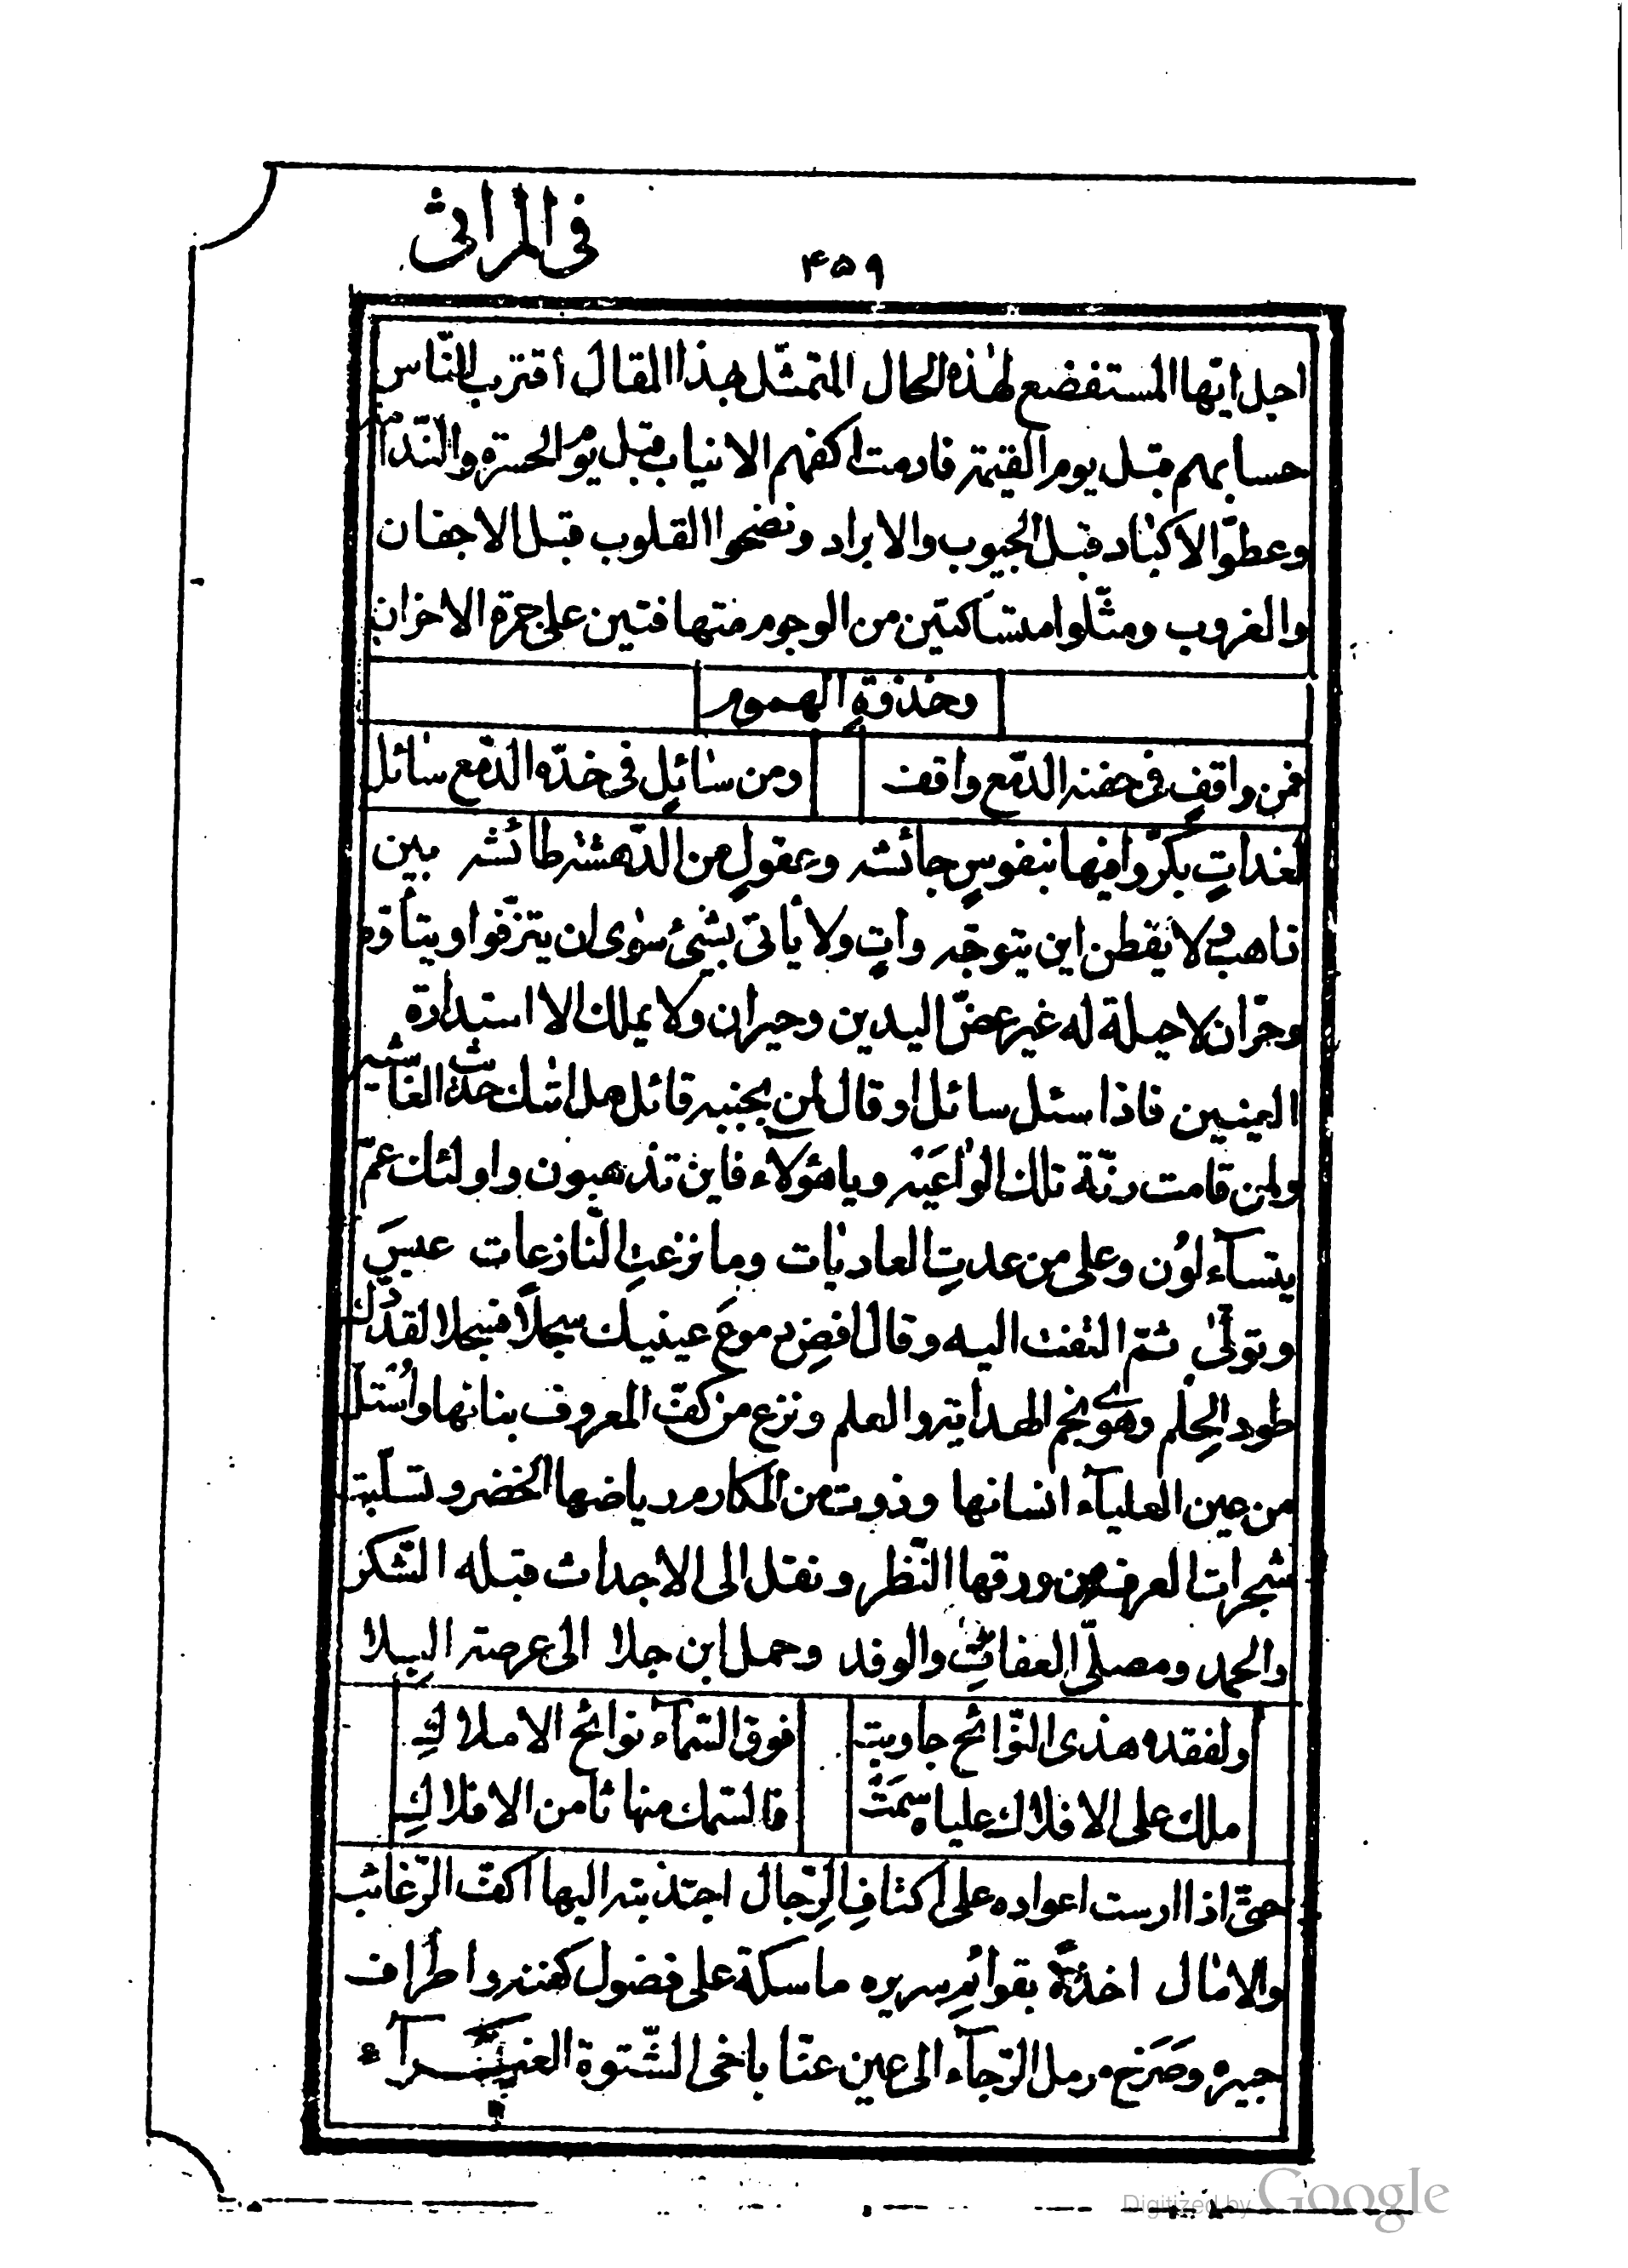 في المراثى
۴۵۹
اجل ايّها المستفضع لهذه الحال المتمثّل بهذا المقال اقترب للنّاس
حسابهم قبل يوم القيمة فادمت اكفهم الانياب قبل يوم الحسرة والنّدامة
وعطّوا الاكباد قبل الجيوب والابراد ونضحوا القلوب قبل الاجفان
والغروب ومثّلوا متساكتين من الوجوم متهافتين على جمرة الاحزان
وخذوة الهموم
فمن واقفٍ في جفنه الدّمع واقف ومن سائلٍ في خدّه الدّمع سائل
لغداتٍ بكّروا فيها بنفوسٍ جائشه وعقولٍ من الدّهشة طائشه بين
ذاهبٍ لا يفطن اين يتوجّه وآتٍ ولا يأتى بشئ سوى ان يتزفّوا ويتأوّه
وحرّان لا حيلة له غير عضّ اليدين وحيران ولا يملك الا استدارة
العينين فاذا سئل سائل او قال لمن بجنبه قائل هل اتٰك حديث الغاشيه
ولمن قامت رنّة تلك الواعيه ويا هؤلاء فاين تذهبون واولئك عمّ
يتسآءلون وعلى من عدتِ العاديات وما نزعتِ النّازعات عبسَ
وتولّىٰ ثمّ التفت اليه وقال افضِ دموعَ عينيك سجلاً فسجلا لقد دُكّ
طود الحِلم وهوى نجم الهداية والعلم ونزع من كفّ المعروف بنانها واستلّ
من عين العليآء انسانها وذوت من المكارم رياضها الخضر وتسلّبت
شجرات العرف من ورقها النّظر ونقل الى الاجداث قبله الشّكر
والحمد ومصلّى العفات والوفد وحمل ابن جلا الى عرصة البِلا
ولفقده هذى النّوائح جاوبت فوق السّمآء نوائح الاملاكِ
ملك على الافلاك علياه سمَت فالسّمك منها ثامن الافلاكِ
حتّى اذا ارست اعواده على اكتافِ الرّجال اجتذبته اليها اكفّ الرّغائب
والامٰال اخذةً بقوائم سريره ماسكة على فضول كفنه واطراف
حبيره وصَرَخ مرمل الرّجآء الى عين عنّا يا خى الشّتوة الغبرآء